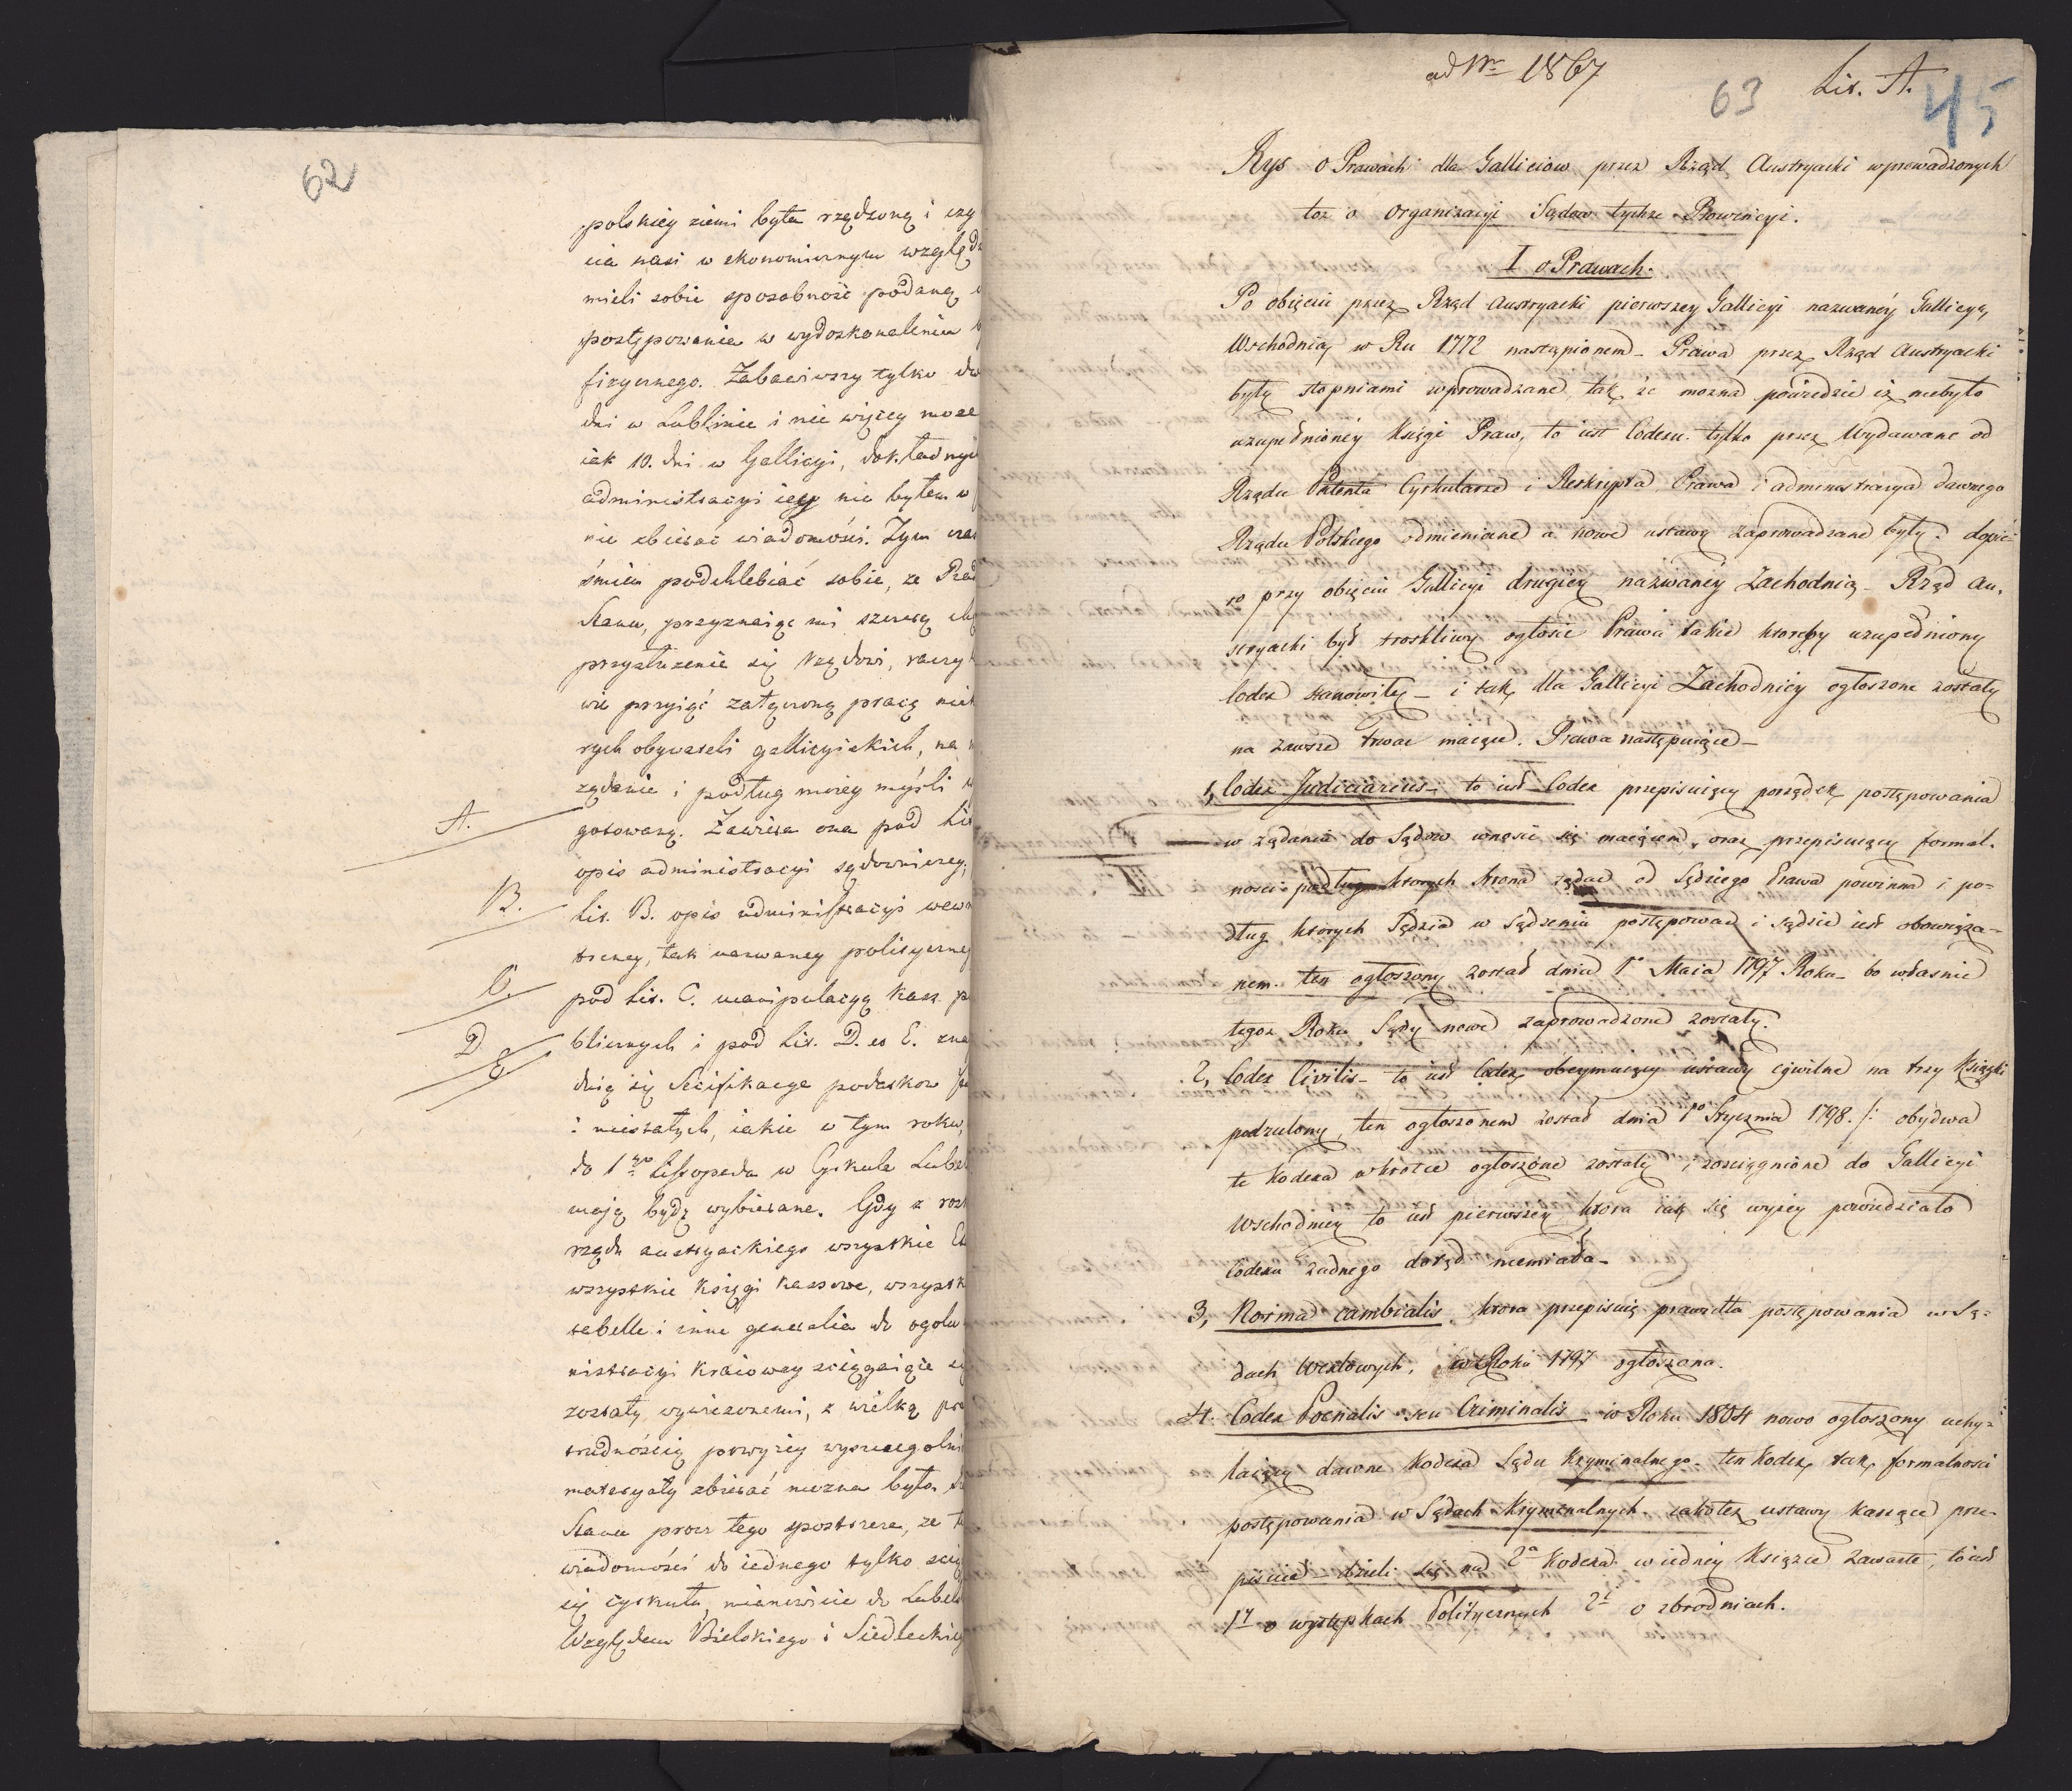 62
polskiey ziemi była rządzoną i czy
cia nasi w ekonomicznym względ
mieli sobie sposobność podaną
postępowania w wydoskonaleniu
fizycznego. Zabawiwszy tylko dw
dni w Lublinie i nie więcey może
iak 10. dni w Gallicyi, dokładnyi
administracyi iey nie byłem w
nie zbierać wiadomości. Tym cza
śmiem podchlebiać sobie, że Rad
Stanu, przyznaiąc mi szczerą chę
przysłużenia się Rządowi, raczy
wie przyiąć załączoną pracą nie
rych obywateli gallicyiskich, na
żądanie i podług moiey myśli
A.
gotowaną. Zawiera ona pod Lit
opis administracyi sądowniczey,
B.
Lit. B. opis administracyi wewn
trzney, tak nazwaney polityczney
C.
pod Lit. C. manipulacyą kass p
D.
E.
blicznych i pod Lit. D. et E. zna
duią się Secifikacye podatkow
i niestałych, iakie w tym roku,
do 1go Listopada w Cyrkule Lubel
maią bydź wybierane. Gdy z roz
rządu austryackiego wszystkie
wszystkie księgi kassowe, wszystk
tabelle i inne generalia do ogołu
nistracyi kraiowey sciągaiące s
zostały wywiezionemi, z wielką
trudnością powyżey wyszczegolni
materyały zbierać można było,
Stanu procz tego spostrzeże, że
wiadomości do iednego tylko scią
się cyrkułu, mianowicie do Lubels
Względem Bialskiego i Siedleckieg
ad Nr 1867
63
Lit. A.
45
Rys o Prawach dla Galliciow przez Rząd Austryacki wprowadzonych
toż o organizacyi Sądow tychże Prowincyi.
I o Prawach.
Po obięciu przez Rząd Austryacki pierwszey Gallicyi nazwanéy Gallicyą,
Wschodnią w Ru 1772 nastąpionem – Prawa przez Rząd Austryacki
były stopniami wprowadzane, tak że można powiedzie iż niebyło
uzupełnionéy Księgi Praw, to iest Codexu tylko przez Wydawane od
Rządu Patenta Cyrkularze i Reskripta Prawa i administracya dawnego
Rządu Polskiego odmieniane a nowe ustawy zaprowadzane były. dopie-
ro przy obięciu Gallicyi drugiéy nazwanéy Zachodnią – Rząd Au-
stryacki był troskliwy ogłosić Prawa takie któreby uzupełniony
Codex stanowiły – i tak dla Gallicyi Zachodniéy ogłoszone zostały
na zawsze trwać maiące. Prawa następuiące –
1, Codex Judiciarius – to iest Codex przepisuiący porządek postępowania
w żądania do Sądow wnosić się maiącem, oraz przepisuiący formal-
ności podług ktorych strona żądać od Sędziego Prawa powinna i po-
dług ktorych Sędzia w sądzeniu postępować i sądzić iest obowiąza-
nem. ten ogłoszony został dnia 1o Maia 1797 Roku – bo właśnie
tegoż Roku Sądy nowe zaprowadzone zostały.
2, Codex Civilis – to iest Codex obeymuiący ustawy cywilne na trzy Książki
podzielony, ten ogłoszonem został dnia 1go Stycznia 1798. /: obydwa
te Kodexa wkrótce ogłoszone zostały i rozciągnione do Gallicyi
Wschodniey to iest pierwszey ktora iak się wyżey powiedziało
Codexu żadnego dotąd niemiała –
3, Norma cambialis ktora przepisuię prawidła postępowania w Są-
dach Wexlowych, w Roku 1797 ogłoszona.
4. Codex Poenalis seu Criminalis w Roku 1804 nowo ogłoszony uchy-
laiący dawne Kodexa Sądu Kryminalnego – ten Kodex tak formalności
postępowania w Sądach Kryminalnych iakotéż ustawy karzące prze-
pisuie – dzieli się na 2a Kodexa w iednéy Książce zawarte, to iest
1y o występkach Politycznych 2i o zbrodniach.